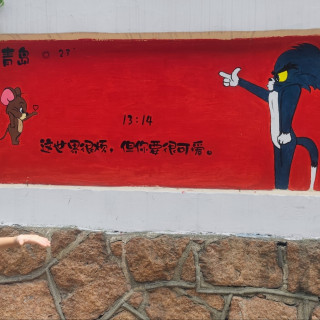 青岛 27°
13:14
这世界很烦，但你要很可爱。